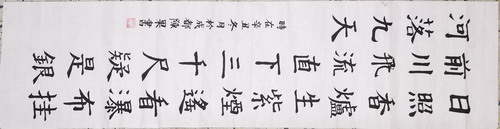 日照香爐生紫煙遙看瀑布挂
前川飛流直下三千尺疑是銀
河落九天
時在辛丑冬月於成都